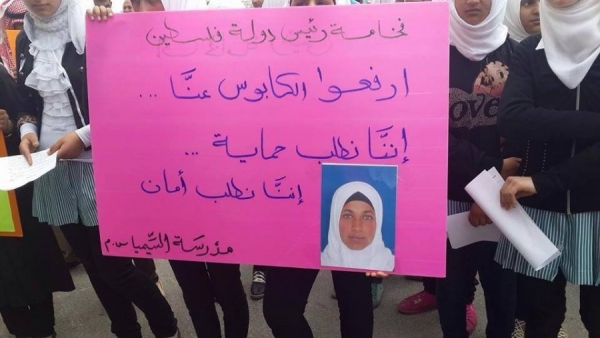 فخامة رئيس دولة فلسطين
ارفعوا الكابوس عنَّا ...
إننَّا نطلب حماية ...
إننَّا نطلب أمان
مدرسة السيِّميا س.م
Love